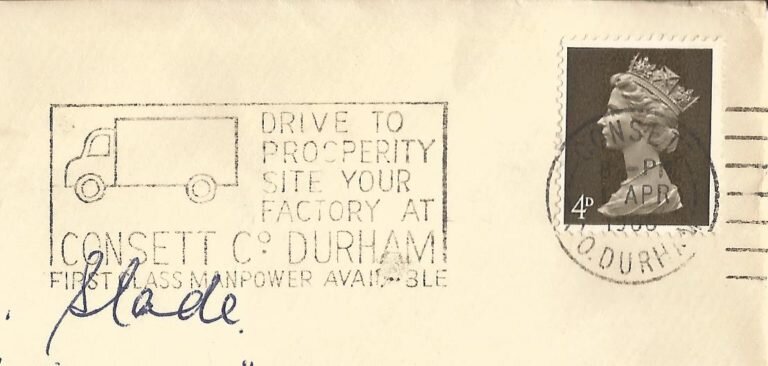 DRIVE TO
PROSPERITY
SITE YOUR
FACTORY AT
CONSETT Cº DURHAM
FIRST CLASS MANPOWER AVAILABLE
4D
CONSETT
PM
APR
CO. DURHAM
Slade.